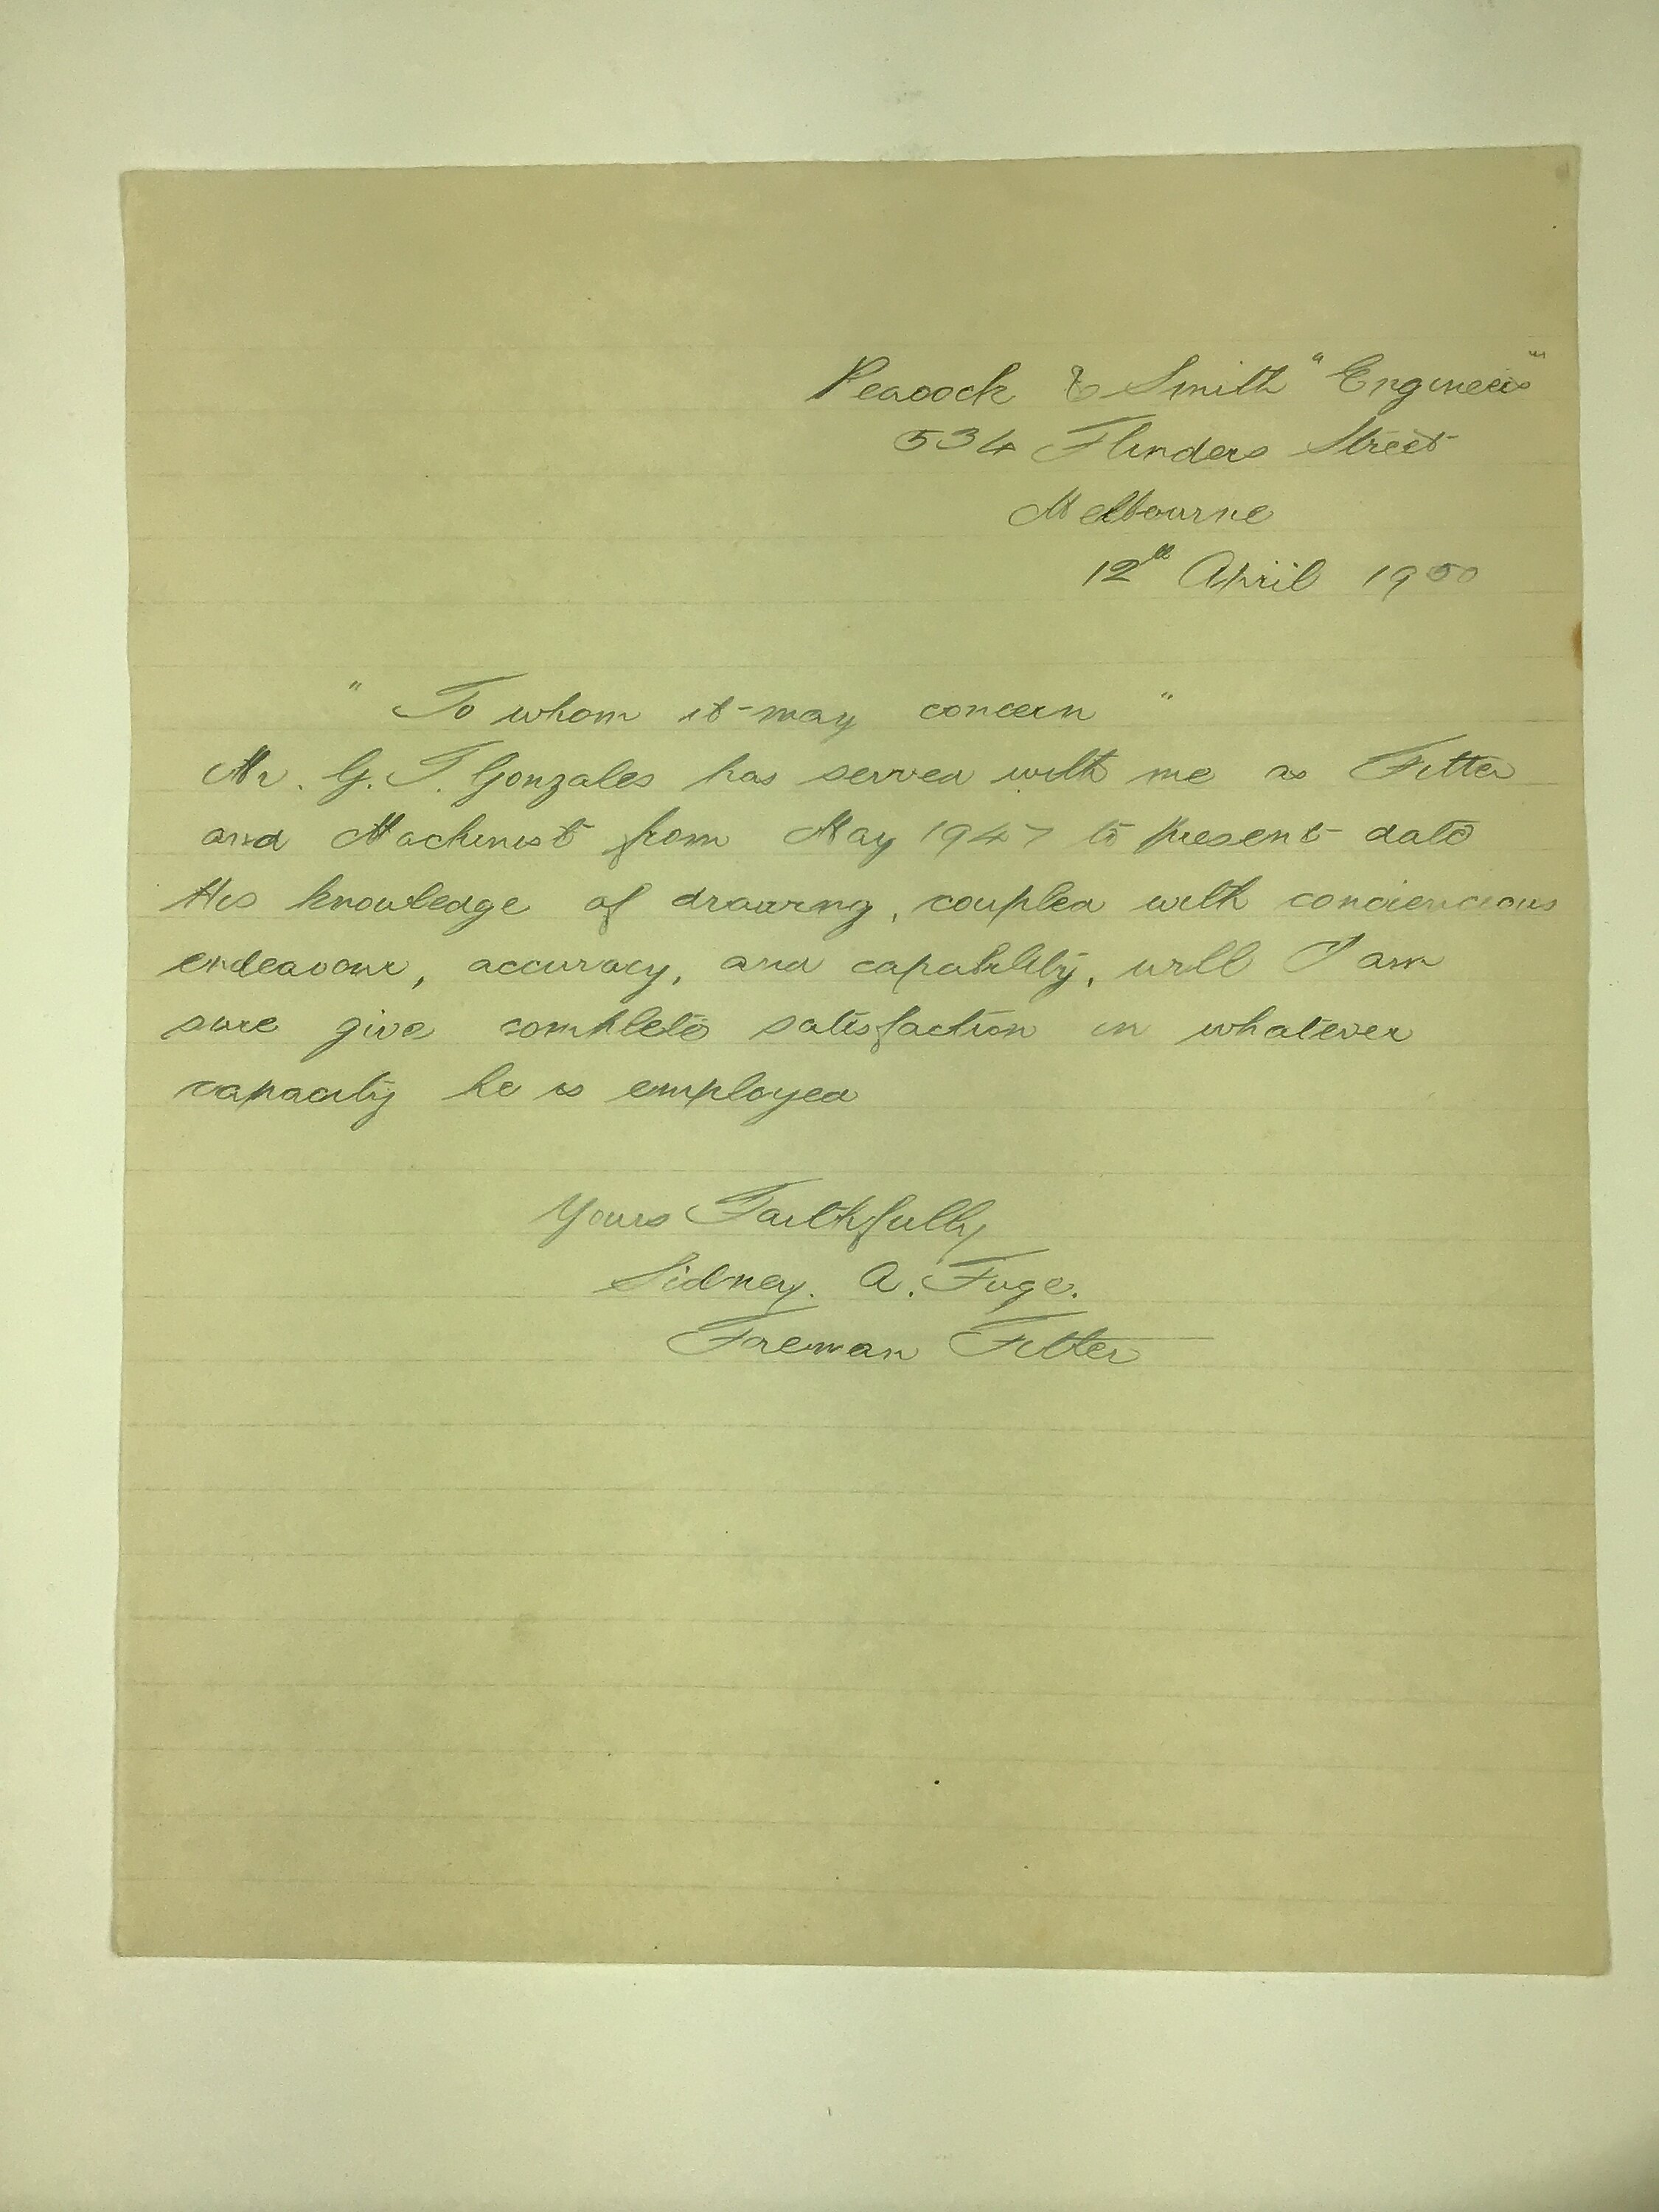 Peacock & Smith "Engineers"
534 Flinders Street
Melbourne
12th April 1950
" To whom it may concern "
Mr. G. T. Gonzales has served with me as Fitter
and Machinist from May 1947 to present date
His knowledge of drawing, coupled with conciencious
endeavour, accuracy, and capability, will I am
sure give complete satisfaction in whatever
capacity he is employed
Yours Faithfully
Sidney. A. Fuge.
Foreman Fitter